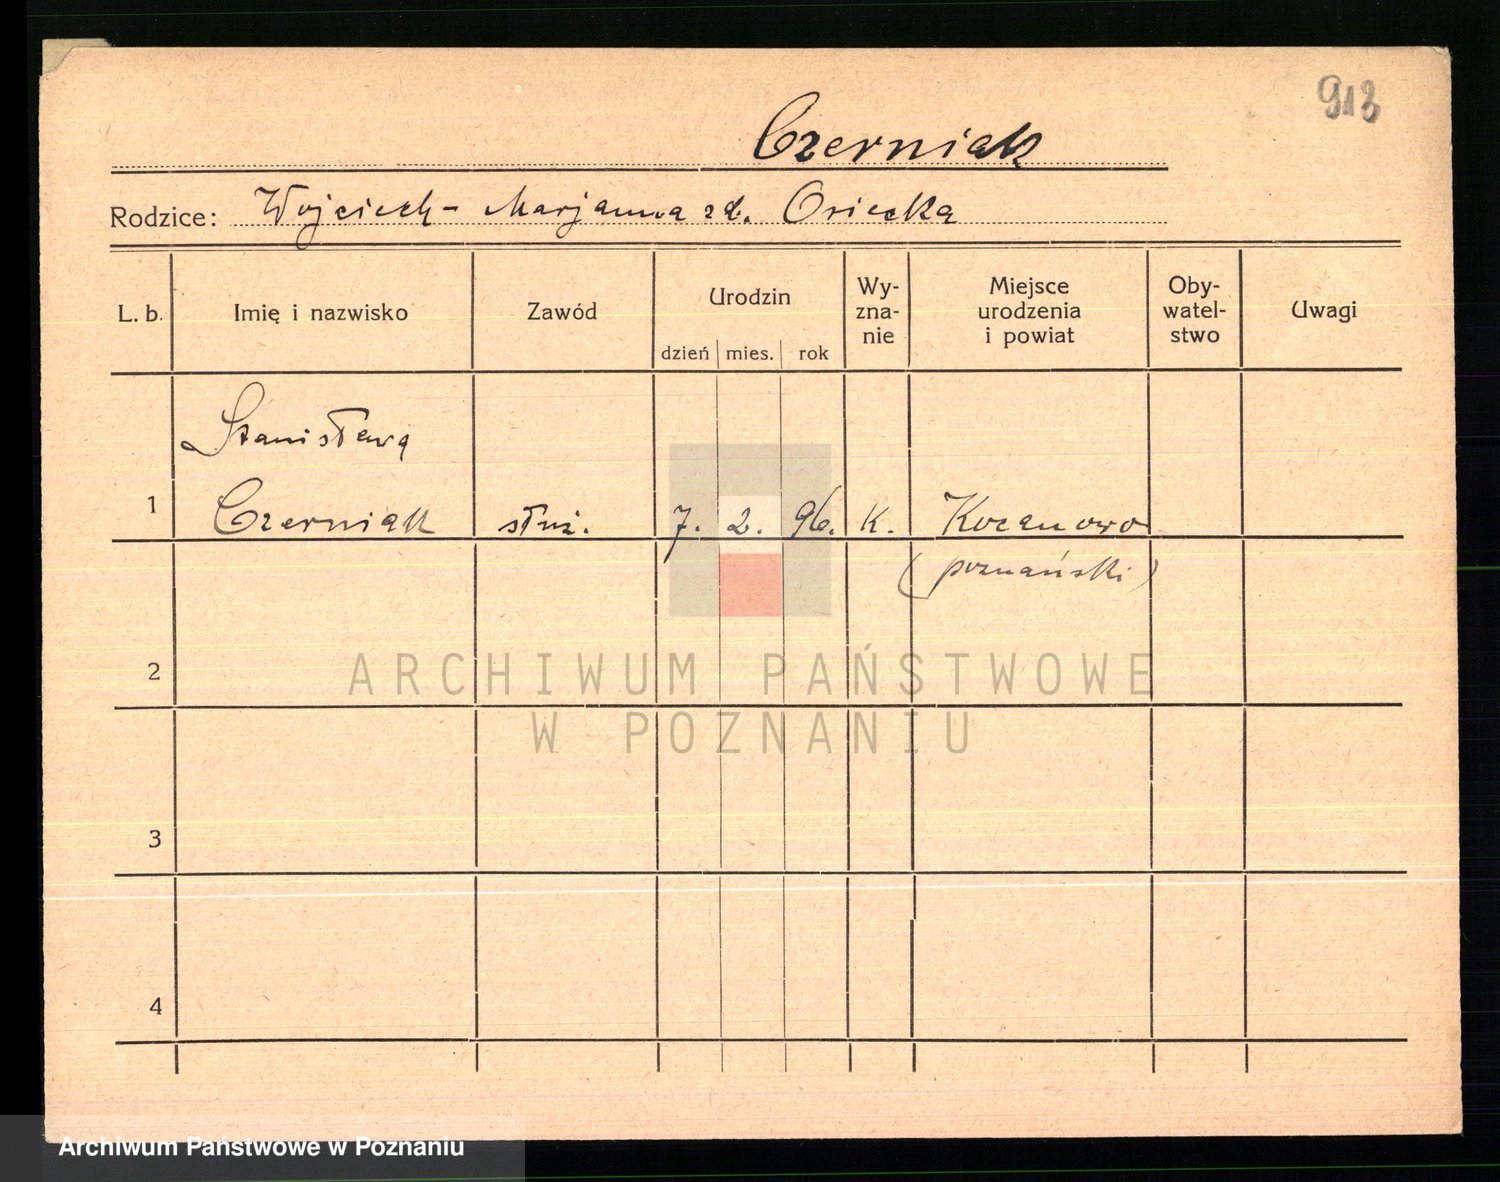 913
Czerniak
Rodzice: Wojciech - Marjanna zd. Osiecka
L. b. Imię i nazwisko Zawód Urodzin dzień mies. rok Wy-zna-nie Miejsce urodzenia i powiat Oby-watel-stwo Uwagi
Stanisława
1 Czerniak służ. 7. 2. 96. K. Kocanowo
(poznański)
2
ARCHIWUM PAŃSTWOWE
W POZNANIU
3
4
Archiwum Państwowe w Poznaniu